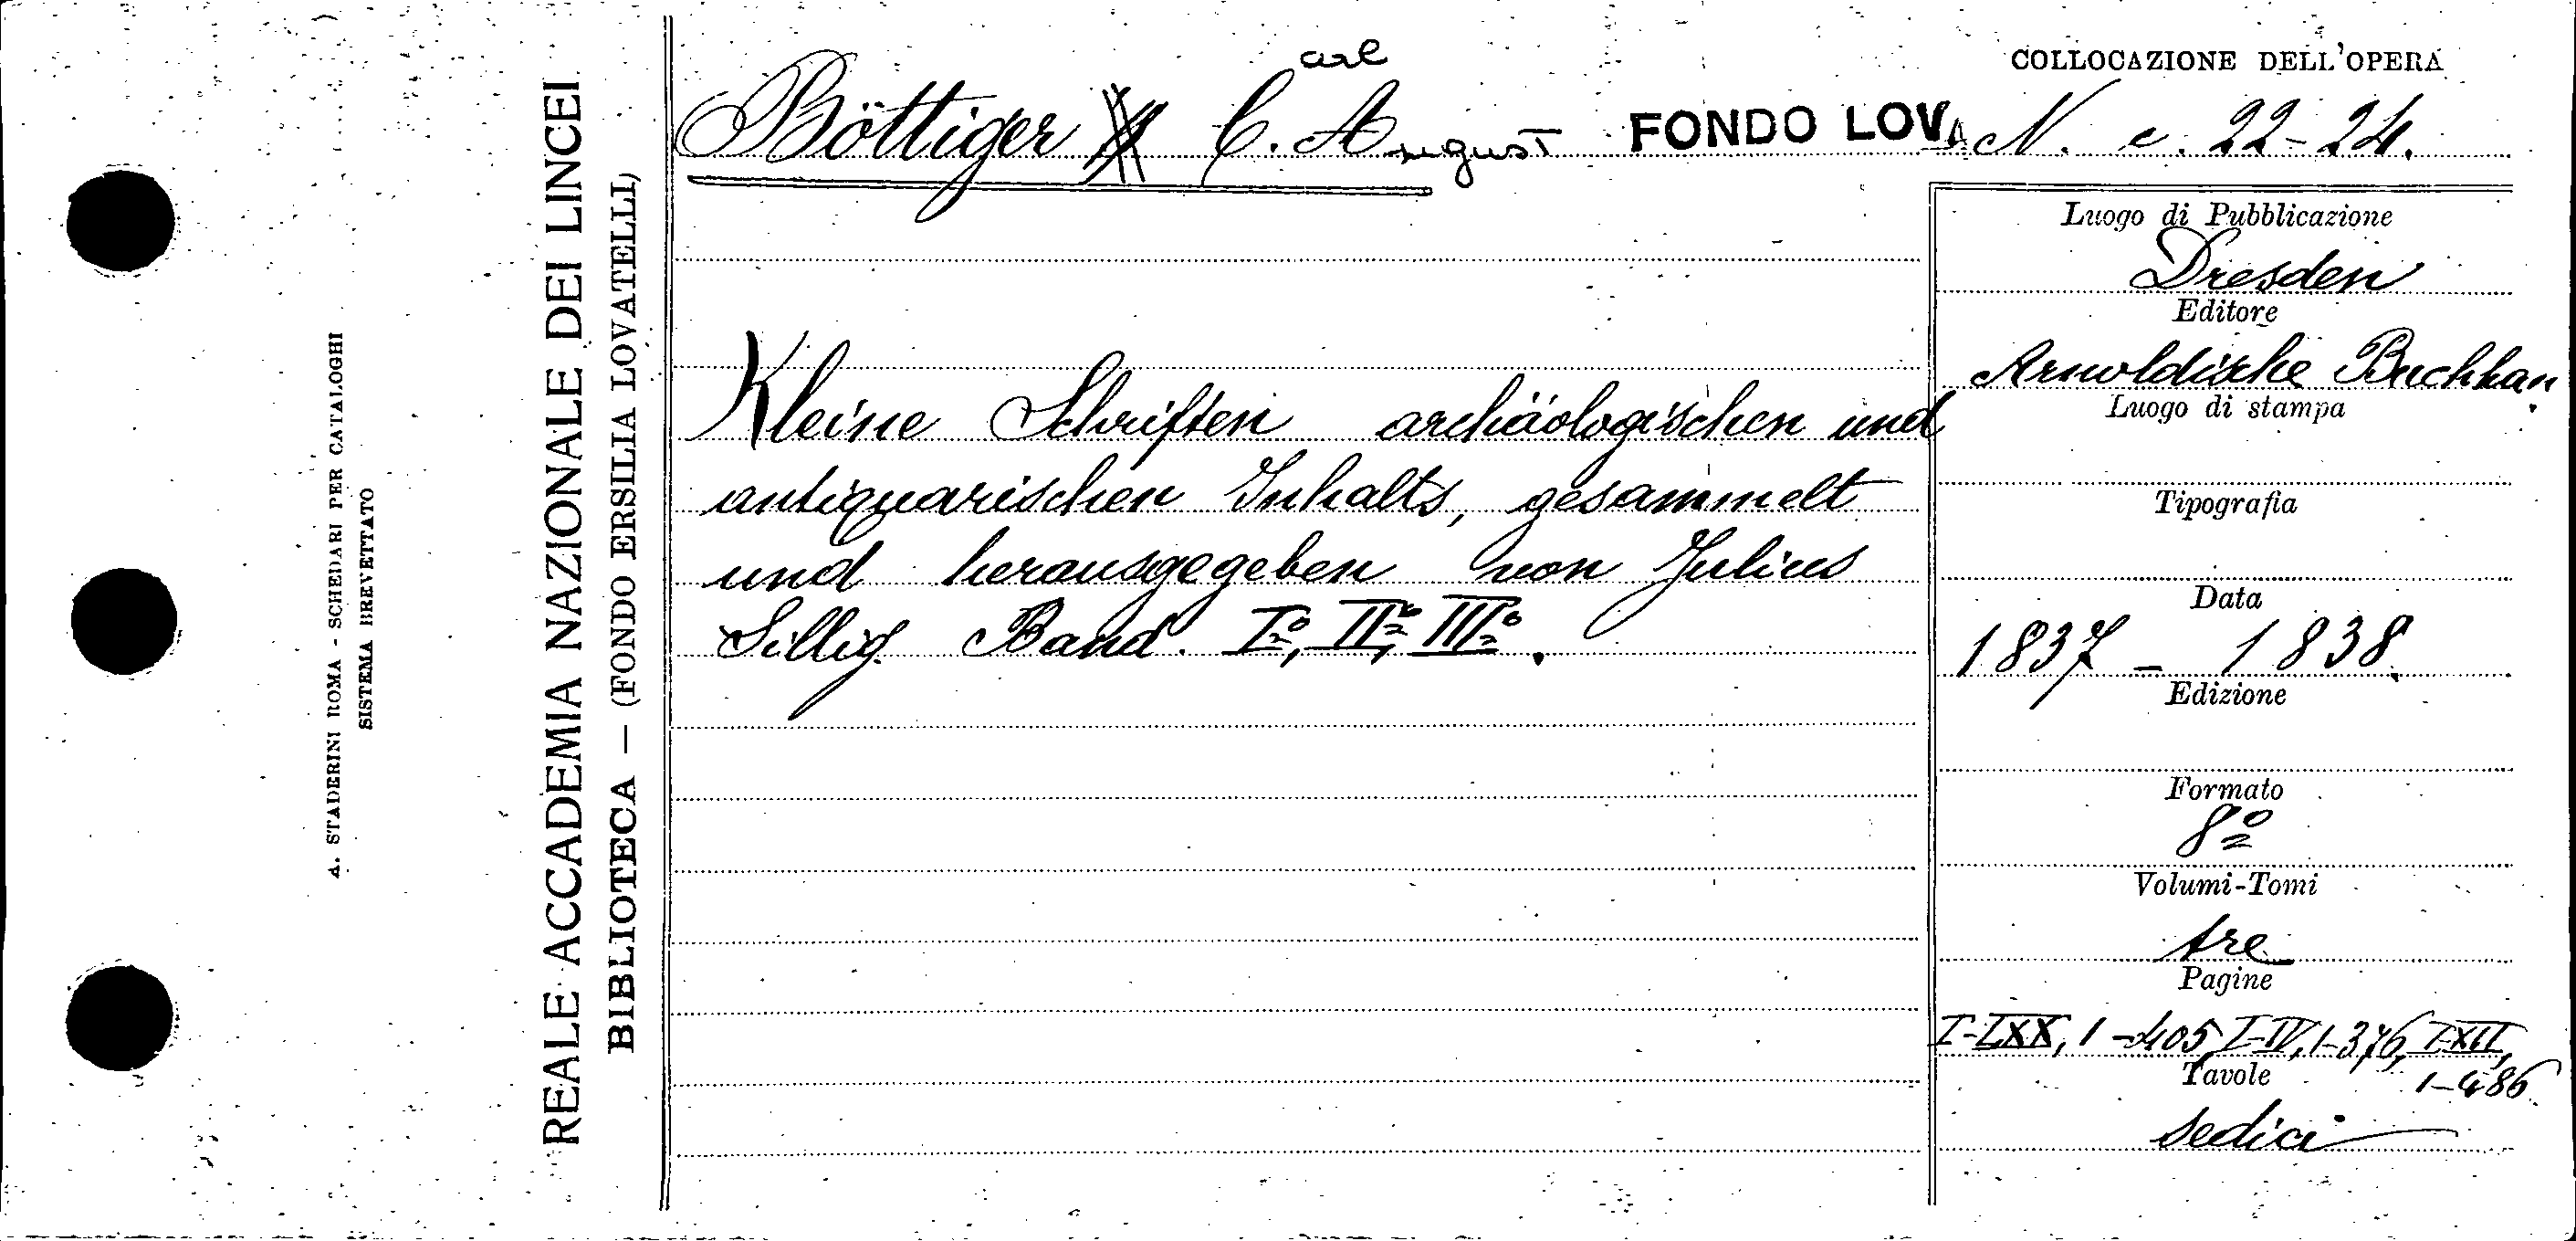 A. STADERINI ROMA - SCHEDARI PER CATALOGHI
SISTEMA BREVETTATO
REALE ACCADEMIA NAZIONALE DEI LINCEI
BIBLIOTECA — (FONDO ERSILIA LOVATELLI)
arl
Böttiger C. August
FONDO LOV.
COLLOCAZIONE DELL'OPERA
N. c. 22-24.
Kleine Schriften archäologischen und
antiquarischen Inhalts, gesammelt
und herausgegeben von Julius
Sillig. Band. Iº, IIº, IIIº.
Luogo di Pubblicazione
Dresden
Editore
Arnoldische Buchhan.
Luogo di stampa
Tipografia
Data
1837 - 1838.
Edizione
Formato
8º
Volumi-Tomi
tre
Pagine
I-LXX, 1-405, I-IV, 1-376, I-XII,
1-486
Tavole
sedici